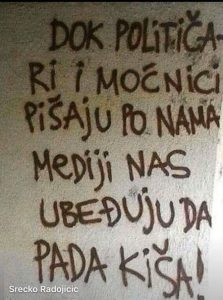 DOK POLITIČA-
RI I MOĆNICI
PIŠAJU PO NAMA
MEDIJI NAS
UBEĐUJU DA
PADA KIŠA!
Srecko Radojicic